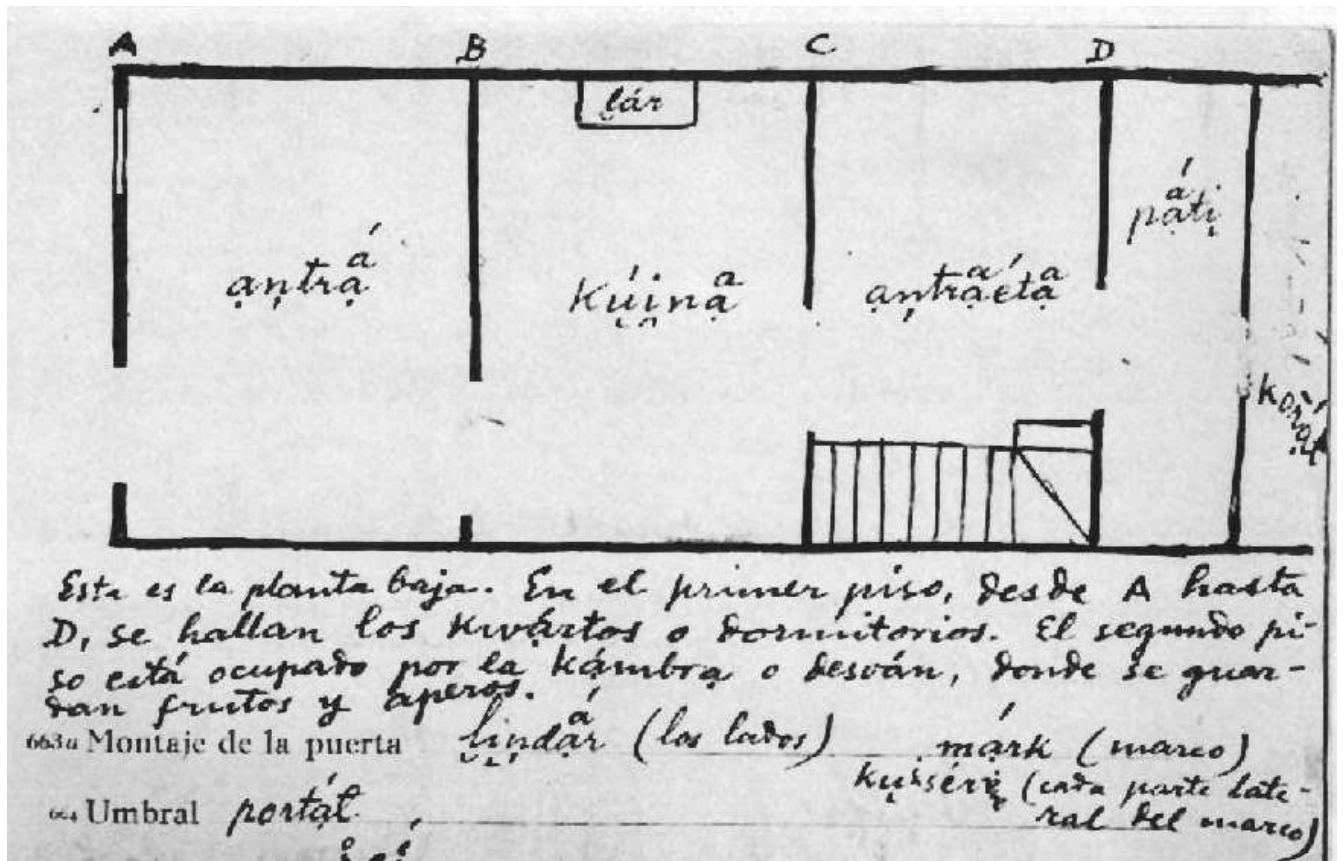 A B C D
ḷár
pạ́ti̯
ạṇtrạ́
kúi̯nạ
ạṇtrạétạ
korạ́t
Esta es la planta baja. En el primer piso, desde A hasta
D, se hallan los kwạ́rtos o dormitorios. El segundo pi-
so está ocupado por la kámbrạ o desván, donde se guar-
dan frutos y aperos.
663a Montaje de la puerta li̯ṇdạ́r (los lados) márk (marco)
(cada parte late-
ral del marco)
664 Umbral portạ́l